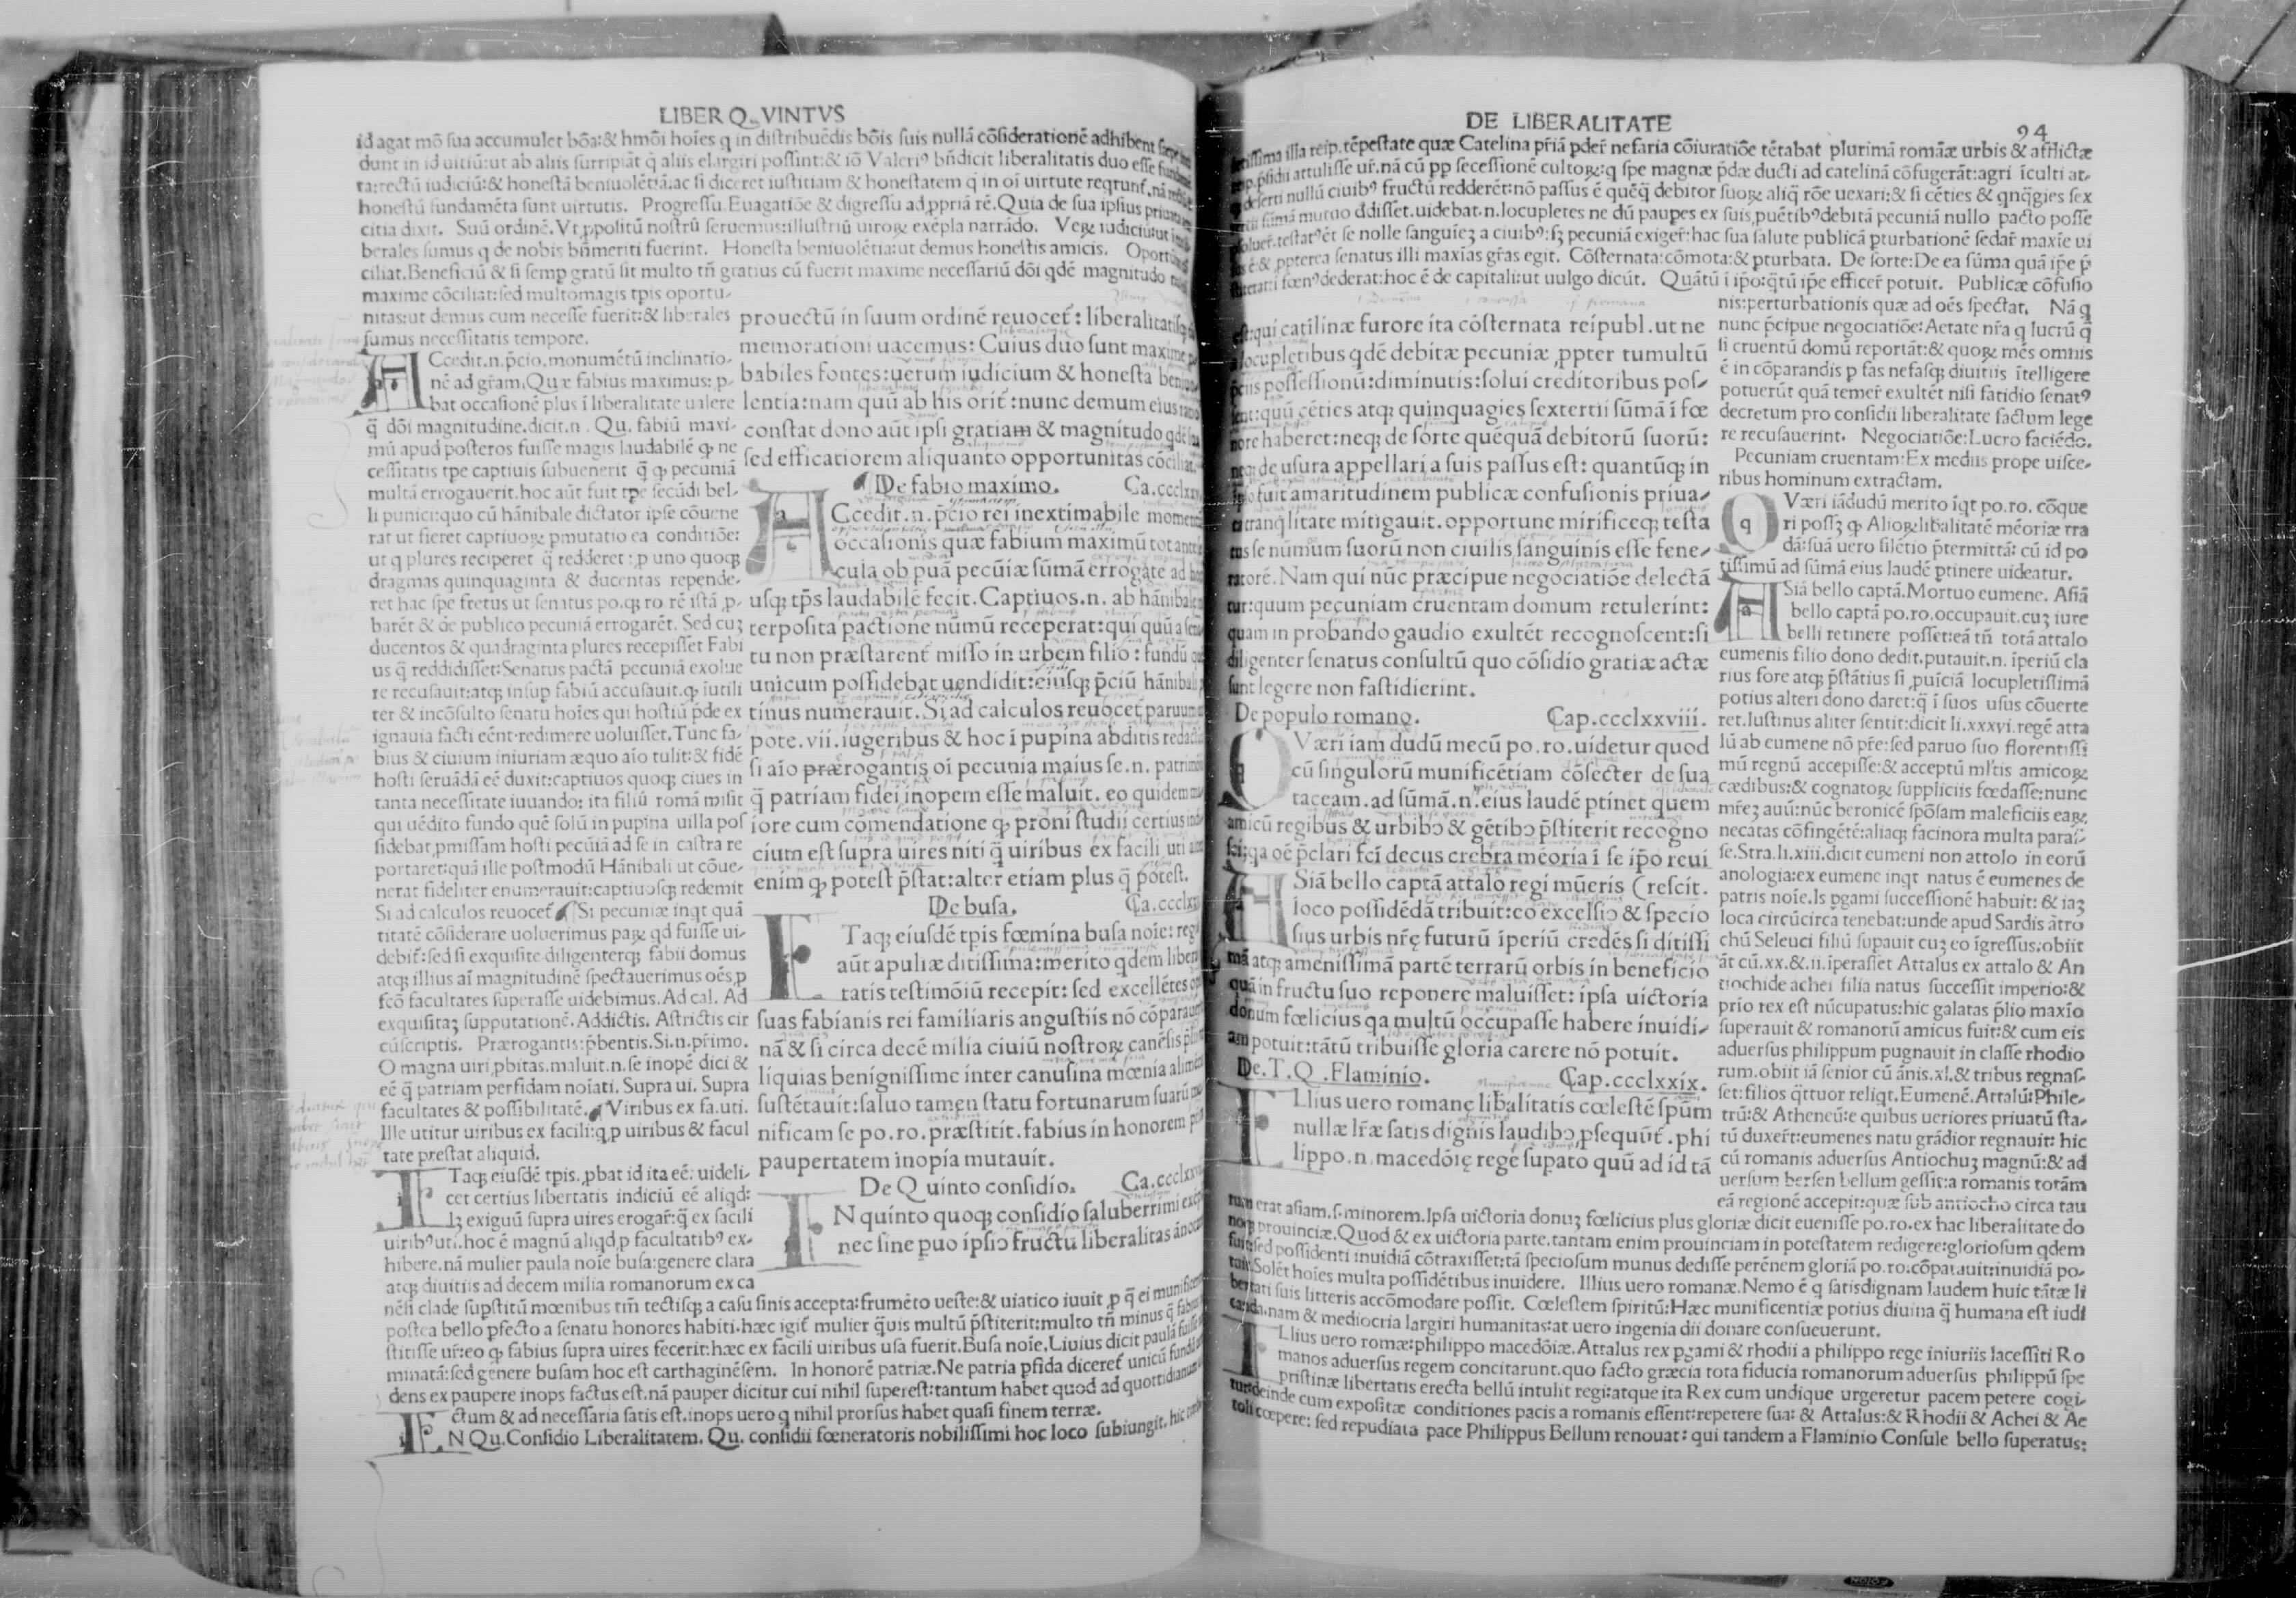 LIBER QVINTVS
id agat mō sua accumulet bōa:& hmōi hoīes q in distribuēdis bōis suis nullā cōsiderationē adhibent
dunt in id uitiū:ut ab aliis surripiāt q̄ aliis elargiri possint:& iō Valeriꝰ bn̄dicit liberalitatis duo esse
ta:rectū iudiciū:& honestā beniuolētiā:ac si diceret iustitiam & honestatem q̄ in oī uirtute reqrunt̃.nā
honestū fundamēta sunt uirtutis. Progressu.Euagatiōe & digressu ad ꝓpriā rē.Quia de sua ipsius
citia dixit. Suū ordinē.Vt ꝓpolitū nostrū seruemus:illustriū uiroꝝ exēpla narrādo. Veꝝ iudiciū:ut
berales sumus q de nobis bn̄meriti fuerint. Honesta beniuolētia:ut demus honestis amicis.
ciliat.Beneficiū & si semp gratū sit multo tn̄ gratius cū fuerit maxime necessariū dōi qdē magnitudo
maxime cōciliat:sed multomagis tpis oportu-
nitas:ut demus cum necesse fuerit:& liberales
sumus necessitatis tempore.
ACcedit.n.p̄cio.monumētū inclinatio-
nē ad gr̄am.Quæ fabius maximus: ꝓ-
bat occasionē plus ī liberalitate ualere
q̄ dōi magnitudine.dicit.n. Qu. fabiū maxi-
mū apud posteros fuisse magis laudabilē ꝙ ne
cessitatis tpe captiuis subuenerit q̄ ꝙ pecuniā
multā errogauerit.hoc aūt fuit tpe secūdi bel-
li punici:quo cū hānibale dictator ipse cōuene
rat ut fieret captiuoꝝ pmutatio ea conditiōe:
ut q plures reciperet q̄ redderet: ꝓ uno quoqꝫ
dragmas quinquaginta & ducentas repende-
ret hac spe fretus ut senatus po.qꝫ ro rē istā ꝓ-
barēt & de publico pecuniā errogarēt. Sed cuꝫ
ducentos & quadraginta plures recepisset Fabi
us q̄ reddidisset:Senatus pactā pecuniā exolue
re recusauit:atqꝫ insup fabiū accusauit.ꝙ īutili
ter & incōsulto senatu hoīes qui hostiū p̄de ex
ignauia facti eēnt redimere uoluisset.Tunc fa-
bius & ciuium iniuriam æquo aīo tulit:& fidē
hosti seruādā eē duxit:captiuos quoqꝫ ciues in
tanta necessitate iuuando: ita filiū romā misit
qui uēdito fundo quē solū in pupina uilla pos
sidebat,pmissam hosti pecūiā ad se in castra re
portaret:quā ille postmodū Hānibali ut cōue-
nerat fideliter enumerauit:captiuosqꝫ redemit
Si ad calculos reuocet̃ Si pecuniæ inqt quā
titatē cōsiderare uoluerimus paꝝ qd fuisse ui-
debit̃:sed si exquisite diligenterqꝫ fabii domus
atqꝫ illius aī magnitudinē spectauerimus oēs ꝓ
fcō facultates superasse uidebimus.Ad cal. Ad
exquisitaꝫ supputationē.Addictis. Astrictis cir
cūscriptis. Prærogantis:p̄bentis.Si.n.pr̄imo.
O magna uiri ꝓbitas.maluit.n.se inopē dici &
eē q̄ patriam perfidam noīati. Supra ui. Supra
facultates & possibilitatē. Viribus ex fa.uti.
Ille utitur uiribus ex facili:q ꝓ uiribus & facul
tate prestat aliquid.
ITaqꝫ eiusdē tpis.ꝓbat id ita eē. uideli-
cet certius libertatis indiciū eē aliqd:
lꝫ exiguū supra uires erogar̄:q̄ ex facili
uiribꝰ uti.hoc ē magnū aliqd ꝓ facultatibꝰ ex-
hibere.nā mulier paula noīe busa:genere clara
atqꝫ diuitiis ad decem milia romanorum ex ca
nēsi clade supstitū mœnibus tm̄ tectisqꝫ a casu sinis accepta:frumēto ueste:& uiatico iuuit ꝓ q̄ ei
postea bello pfecto a senatu honores habiti.hæc igit̃ mulier q̄uis multū p̄stiterit:multo tn̄ minus q̄
stitisse ur̄:eo ꝙ fabius supra uires fecerit:hæc ex facili uiribus usa fuerit.Busa noīe.Liuius dicit paulā
minatā:sed genere busam hoc est carthaginēsem. In honorē patriæ.Ne patria pfida diceret̃ unicū
dens ex paupere inops factus est.nā pauper dicitur cui nihil superest:tantum habet quod ad quottidianum
ctum & ad necessaria satis est.inops uero q nihil prorsus habet quasi finem terræ.
IN Qu.Considio Liberalitatem. Qu. considii fœneratoris nobilissimi hoc loco subiungit. hic
prouectū in suum ordinē reuocet̃: liberalitatisqꝫ
memorationi uacemus: Cuius duo sunt maxime
babiles fontes:uerum iudicium & honesta
lentia:nam quū ab his orit̃:nunc demum eius
constat dono aūt ipsi gratiam & magnitudo qdē
sed efficatiorem aliquanto opportunitas cōciliat.
De fabio maximo.
ACcedit.n.p̄cio rei inextimabile
occasionis quæ fabium maximū tot
cula ob puā pecūiæ sūmā errogate ad
usqꝫ tp̄s laudabilē fecit.Captiuos.n. ab hānibale
terposita pactione nūmū receperat:qui quū a
tu non præstarent̃ misso in urbem filio: fundū
unicum possidebat uendidit:eiusqꝫ p̄ciū
tinus numerauit.Si ad calculos reuocet̃ paruum
pote.vii.iugeribus & hoc ī pupina abditis
si aīo prærogantis oī pecunia maius se.n.
q̄ patriam fidei inopem esse maluit. eo quidem
iore cum comendatione ꝙ proni studii certius
cium est supra uires niti q̄ uiribus ex facili uti
enim ꝙ potest p̄stat:alter etiam plus q̄ potest.
De busa.
ITaqꝫ eiusdē tpis fœmina busa noīe:
aūt apuliæ ditissima:merito qdem
tatis testimōiū recepit: sed excellētes
suas fabianis rei familiaris angustiis nō
nā & si circa decē milia ciuiū nostroꝝ canēsis
liquias benignissime inter canusina mœnia
sustētauit:saluo tamen statu fortunarum suarū
nificam se po.ro. præstitit.fabius in honorem
paupertatem inopia mutauit.
De Quinto considio.
IN quinto quoqꝫ considio saluberrimi
nec sine puo ipsiꝰ fructu liberalitas
DE LIBERALITATE
94
illa reip.tēpestate quæ Catelina pr̄iā pder̄ nefaria cōiuratiōe tētabat plurimā romāæ urbis & afflictæ
attulisse ur̄.nā cū pp secessionē cultoꝝ:q spe magnæ p̄dæ ducti ad catelinā cōfugerāt:agri īculti at-
deserti nullū ciuibꝰ fructū redderēt:nō passus ē quēq̄ debitor suoꝝ aliq̄ rōe uexari:& si cēties & qnq̄gies sex
sūmā mutuo dedisset.uidebat.n.locupletes ne dū paupes ex suis puētibꝰ debitā pecuniā nullo pacto posse
testatꝰ ēt se nolle sanguīeꝫ a ciuibꝰ:sꝫ pecuniā exiger̄:hac sua salute publicā pturbationē sedar̄ maxīe ui
ē:& ppterea senatus illi maxīas gr̄as egit. Cōsternata:cōmota:& pturbata. De sorte:De ea sūma quā ip̄e p̄
ī fœnꝰ dederat:hoc ē de capitali:ut uulgo dicūt. Quātū ī ip̄o:q̄tū ip̄e efficer̄ potuit. Publicæ cōfusio
nis:perturbationis quæ ad oēs spectat. Nā q
nunc p̄cipue negociatiōe:Aetate nr̄a q lucrū q̄
si cruentū domū reportāt:& quoꝝ mēs omnis
ē in cōparandis p fas nefasqꝫ diuitiis ītelligere
potuerūt quā temer̄ exultēt nisi fatidio senatꝰ
decretum pro considii liberalitate factum lege
re recusauerint. Negociatiōe:Lucro faciēdo.
Pecuniam cruentam:Ex mediis prope uisce-
ribus hominum extractam.
QVæri iādudū merito īqt po.ro. cōque
ri possꝫ ꝙ Alioꝝ libalitatē mēoriæ tra
dā:suā uero silētio p̄termittā: cū id po
tissimū ad sūmā eius laudē ptinere uideatur.
ASiā bello captā.Mortuo eumene. Asiā
bello captā po.ro.occupauit.cuꝫ iure
belli retinere posset:eā tn̄ totā attalo
eumenis filio dono dedit.putauit.n. īperiū cla
rius fore atqꝫ p̄stātius si ꝓuīciā locupletissimā
potius alteri dono daret:q̄ ī suos usus cōuerte
ret.Iustinus aliter sentit:dicit li.xxxvi.regē atta
lū ab eumene nō pr̄e:sed paruo suo florentissi
mū regnū accepisse:& acceptū ml̄tis amicoꝝ
cædibus:& cognatoꝝ suppliciis fœdasse:nunc
mr̄eꝫ auū:nūc beronicē spōsam maleficiis eaꝝ
necatas cōfingētē:aliaqꝫ facinora multa paras-
se.Stra.li.xiii.dicit eumeni non attolo in eorū
anologia:ex eumene inqt natus ē eumenes de
patris noīe.Is pgami successionē habuit: & iaꝫ
loca circūcirca tenebat:unde apud Sardis ātro
chū Seleuci filiū supauit cuꝫ eo īgressus:obiit
āt cū.xx.&.ii.īperasset Attalus ex attalo & An
tiochide achei filia natus successit imperio:&
prīo rex est nūcupatus:hic galatas p̄lio maxīo
superauit & romanorū amicus fuit:& cum eis
aduersus philippum pugnauit in classe rhodio
rum.obiit iā senior cū ānis.xl.& tribus regnas-
set:filios q̄ttuor reliqt.Eumenē.Attalū:Phile-
trū:& Atheneū:e quibus ueriores priuatū sta-
tū duxer̄t:eumenes natu grādior regnauit: hic
cū romanis aduersus Antiochuꝫ magnū:& ad
uersum bersen bellum gessit:a romanis totām
eā regionē accepit:quæ sub antiocho circa tau
rum erat asiam.s.minorem.Ipsa uictoria donuꝫ fœlicius plus gloriæ dicit euenisse po.ro.ex hac liberalitate do
prouinciæ.Quod & ex uictoria parte.tantam enim prouinciam in potestatem redigere:gloriosum qdem
sed possidenti inuidiā cōtraxisset:tā speciosum munus dedisse perēnem gloriā po.ro.cōparauit:inuidiā po-
Solēt hoīes multa possidētibus inuidere. Illius uero romanæ.Nemo ē q satisdignam laudem huic tātæ li
bertati suis litteris accōmodare possit. Cœlestem spiritū:Hæc munificentiæ potius diuina q̄ humana est iudi
nam & mediocria largiri humanitas:at uero ingenia dii donare consueuerunt.
ILlius uero romæ:philippo macedōiæ.Attalus rex pgami & rhodii a philippo rege iniuriis lacessiti Ro
manos aduersus regem concitarunt.quo facto græcia tota fiducia romanorum aduersus philippū spe
pristinæ libertatis erecta bellū intulit regi:atque ita Rex cum undique urgeretur pacem petere cogi-
tur:deinde cum expositæ conditiones pacis a romanis essent:repetere sua: & Attalus:& Rhodii & Achei & Ae
toli cœpere: sed repudiata pace Philippus Bellum renouat: qui tandem a Flaminio Consule bello superatus:
est:qui catilinæ furore ita cōsternata reipubl.ut ne
locupletibus qdē debitæ pecuniæ ꝓpter tumultū
p̄ciis possessionū:diminutis:solui creditoribus pos-
sent:quū cēties atqꝫ quinquagies sextertii sūmā ī fœ
nore haberet:neqꝫ de sorte quēquā debitorū suorū:
neqꝫ de usura appellari a suis passus est: quantūqꝫ in
ipso fuit amaritudinem publicæ confusionis priua-
ta tranq̄litate mitigauit.opportune mirificeqꝫ testa
tus se nūmum suorū non ciuilis sanguinis esse fene-
ratorē.Nam qui nūc præcipue negociatiōe delectā
tur:quum pecuniam cruentam domum retulerint:
quam in probando gaudio exultēt recognoscent:si
diligenter senatus consultū quo cōsidio gratiæ actæ
sunt legere non fastidierint.
De populo romano. Cap.ccclxxviii.
QVæri iam dudū mecū po.ro.uidetur quod
cū singulorū munificētiam cōsecter de sua
taceam.ad sūmā.n.eius laudē ptinet quem
amicū regibus & urbibꝰ & gētibꝰ p̄stiterit recogno
sci:qa oē p̄clari fcī decus crebra mēoria ī se ip̄o reui
ASiā bello captā attalo regi mūeris (rescit.
loco possidēdā tribuit:eo excelsiꝰ & specio
sius urbis nr̄ę futurū īperiū credēs si ditissi
mā atqꝫ amēnissimā partē terrarū orbis in beneficio
quā in fructu suo reponere maluisset: ipsa uictoria
donum fœlicius qa multū occupasse habere inuidi-
am potuit:tātū tribuisse gloria carere nō potuit.
De.T.Q .Flaminio. Cap.ccclxxix.
ILlius uero romanę libalitatis cœlestē spūm
nullæ lr̄æ satis dignis laudibꝰ ꝓsequūt̃.phi
lippo.n.macedōię regē supato quū ad id tā